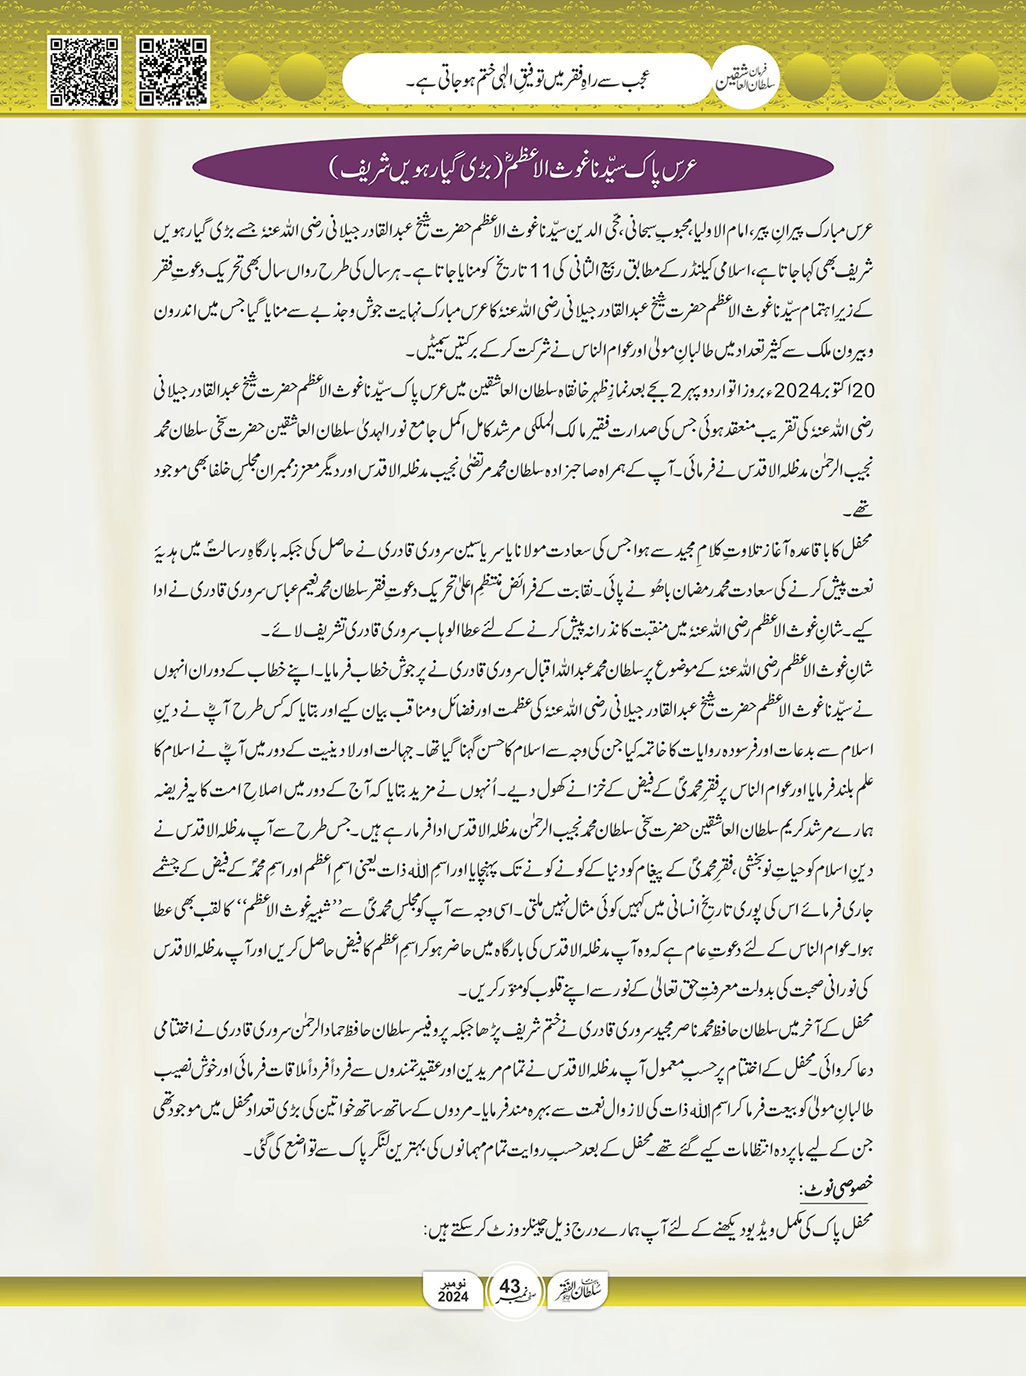 فرمان سلطان العاشقین
عجب سے راہِ فقر میں توفیقِ الٰہی ختم ہو جاتی ہے۔
عرس پاک سیّدنا غوث الاعظمؓ (بڑی گیارھویں شریف)
عرس مبارک پیرانِ پیر، امام الاولیا، محبوبِ سبحانی، محی الدین سیّدنا غوث الاعظم حضرت شیخ عبدالقادر جیلانی رضی اللہ عنہٗ جسے بڑی گیارہویں
شریف بھی کہا جاتا ہے، اسلامی کیلنڈر کے مطابق ربیع الثانی کی 11 تاریخ کو منایا جاتا ہے۔ ہر سال کی طرح رواں سال بھی تحریک دعوتِ فقر
کے زیرِ اہتمام سیّدنا غوث الاعظم حضرت شیخ عبدالقادر جیلانی رضی اللہ عنہٗ کا عرس مبارک نہایت جوش و جذبے سے منایا گیا جس میں اندرون
و بیرون ملک سے کثیر تعداد میں طالبانِ مولیٰ اور عوام الناس نے شرکت کر کے برکتیں سمیٹیں۔
20 اکتوبر 2024ء بروز اتوار دوپہر 2 بجے بعد نمازِ ظہر خانقاہ سلطان العاشقین میں عرس پاک سیّدنا غوث الاعظم حضرت شیخ عبدالقادر جیلانی
رضی اللہ عنہٗ کی تقریب منعقد ہوئی جس کی صدارت فقیر مالک الملکی مرشد کامل اکمل جامع نور الہدیٰ سلطان العاشقین حضرت سخی سلطان محمد
نجیب الرحمٰن مدظلہ الاقدس نے فرمائی۔ آپ کے ہمراہ صاحبزادہ سلطان محمد مرتضیٰ نجیب مدظلہ الاقدس اور دیگر معزز ممبران مجلسِ خلفا بھی موجود
تھے۔
محفل کا باقاعدہ آغاز تلاوتِ کلامِ مجید سے ہوا جس کی سعادت مولانا یاسر یاسین سروری قادری نے حاصل کی جبکہ بارگاہِ رسالتؐ میں ہدیۂ
نعت پیش کرنے کی سعادت محمد رمضان باھُو نے پائی۔ نقابت کے فرائض منتظمِ اعلیٰ تحریک دعوتِ فقر سلطان محمد نعیم عباس سروری قادری نے ادا
کیے۔ شانِ غوث الاعظم رضی اللہ عنہٗ میں منقبت کا نذرانہ پیش کرنے کے لئے عطا الوہاب سروری قادری تشریف لائے۔
شانِ غوث الاعظم رضی اللہ عنہٗ کے موضوع پر سلطان محمد عبداللہ اقبال سروری قادری نے پرجوش خطاب فرمایا۔ اپنے خطاب کے دوران انہوں
نے سیّدنا غوث الاعظم حضرت شیخ عبدالقادر جیلانی رضی اللہ عنہٗ کی عظمت اور فضائل و مناقب بیان کیے اور بتایا کہ کس طرح آپؓ نے دینِ
اسلام سے بدعات اور فرسودہ روایات کا خاتمہ کیا جن کی وجہ سے اسلام کا حسن گہنا گیا تھا۔ جہالت اور لادینیت کے دور میں آپؓ نے اسلام کا
علم بلند فرمایا اور عوام الناس پر فقرِ محمدیؐ کے فیض کے خزانے کھول دیے۔ اُنہوں نے مزید بتایا کہ آج کے دور میں اصلاحِ امت کا یہ فریضہ
ہمارے مرشد کریم سلطان العاشقین حضرت سخی سلطان محمد نجیب الرحمٰن مدظلہ الاقدس ادا فرما رہے ہیں۔ جس طرح سے آپ مدظلہ الاقدس نے
دینِ اسلام کو حیاتِ نو بخشی، فقرِ محمدیؐ کے پیغام کو دنیا کے کونے کونے تک پہنچایا اور اسمِ اللہ ذات یعنی اسمِ اعظم اور اسمِ محمدؐ کے فیض کے چشمے
جاری فرمائے اس کی پوری تاریخِ انسانی میں کہیں کوئی مثال نہیں ملتی۔ اسی وجہ سے آپ کو مجلسِ محمدیؐ سے ”شبیہِ غوث الاعظم“ کا لقب بھی عطا
ہوا۔ عوام الناس کے لئے دعوتِ عام ہے کہ وہ آپ مدظلہ الاقدس کی بارگاہ میں حاضر ہو کر اسمِ اعظم کا فیض حاصل کریں اور آپ مدظلہ الاقدس
کی نورانی صحبت کی بدولت معرفتِ حق تعالیٰ کے نور سے اپنے قلوب کو منوّر کریں۔
محفل کے آخر میں سلطان حافظ محمد ناصر مجید سروری قادری نے ختم شریف پڑھا جبکہ پروفیسر سلطان حافظ حماد الرحمٰن سروری قادری نے اختتامی
دعا کروائی۔ محفل کے اختتام پر حسبِ معمول آپ مدظلہ الاقدس نے تمام مریدین اور عقیدتمندوں سے فرداً فرداً ملاقات فرمائی اور خوش نصیب
طالبانِ مولیٰ کو بیعت فرما کر اسمِ اللہ ذات کی لازوال نعمت سے بہرہ مند فرمایا۔ مردوں کے ساتھ ساتھ خواتین کی بڑی تعداد محفل میں موجود تھی
جن کے لیے باپردہ انتظامات کیے گئے تھے۔ محفل کے بعد حسبِ روایت تمام مہمانوں کی بہترین لنگر پاک سے تواضع کی گئی۔
خصوصی نوٹ:
محفل پاک کی مکمل ویڈیو دیکھنے کے لئے آپ ہمارے درج ذیل چینلز وزٹ کر سکتے ہیں:
سلطان الفقر
صفحہ نمبر 43
نومبر 2024